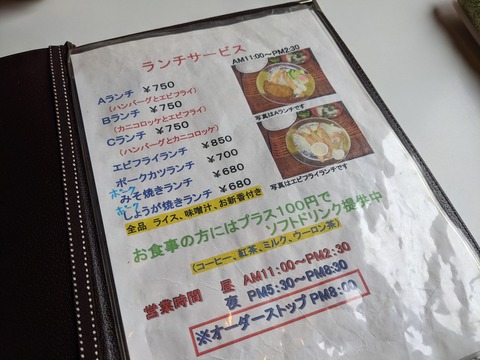 ランチサービス
AM11:00～PM2:30
Aランチ ￥750
(ハンバーグとエビフライ)
Bランチ ￥750
(カニコロッケとエビフライ)
Cランチ ￥750
(ハンバーグとカニコロッケ)
写真はAランチです
エビフライランチ ￥850
ポークカツランチ ￥700
ポーク
みそ焼きランチ ￥680
ポーク
しょうが焼きランチ ￥680
写真はエビフライランチです
全品 ライス、味噌汁、お新香付き
お食事の方にはプラス100円で
ソフトドリンク提供中
(コーヒー、紅茶、ミルク、ウーロン茶)
営業時間 昼 AM11:00～PM2:30
夜 PM5:30～PM8:30
※オーダーストップ PM8:00